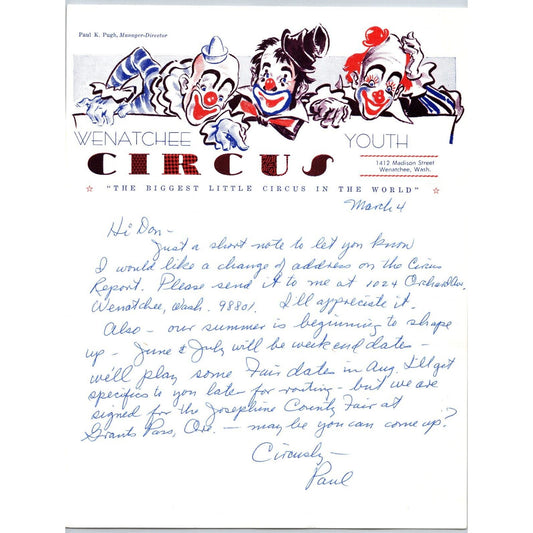 Paul K. Pugh, Manager-Director
WENATCHEE YOUTH
CIRCUS
1412 Madison Street
Wenatchee, Wash.
☆ "THE BIGGEST LITTLE CIRCUS IN THE WORLD" ☆
March 4
Hi Don-
Just a short note to let you know
I would like a change of address on the Circus
Report. Please send it to me at 1024
Wenatchee, Wash. 98801. I'll appreciate it.
Also - our summer is beginning to shape
up - June & July will be weekend dates -
we'll play some Fair dates in Aug. I'll get
specifics to you later for routing - but we are
signed for the Josephine County Fair at
Grants Pass, Ore. - maybe you can come up?
Circusly -
Paul